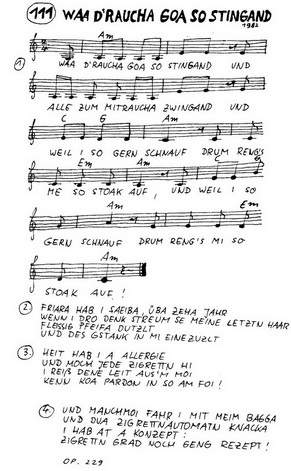 111 WAA D'RAUCHA GOA SO STINGAND
1982
Am
1 WAA D'RAUCHA GOA SO STINGAND UND
ALLE ZUM MITRAUCHA ZWINGAND UND
C G Am
WEIL I SO GERN SCHNAUF DRUM RENG'S
Em Am C
ME SO STOAK AUF, UND WEIL I SO
Am Em
GERN SCHNAUF DRUM RENG'S MI SO
Am
STOAK AUF!
2 FRIARA HAB I SAEIBA, ÜBA ZEHA JAHR
WENN I DRO DENK STREUM SE MEINE LETZTN HAAR
FLEISSIG PFEIFA DUTZLT
UND DES GSTANK IN MI EINEZUZLT
3. HEIT HAB I A ALLERGIE
UND NOCH JEDE ZIGRETTN HI
I REIß DENE LEIT AUS'M MOI
KENN KOA PARDON IN SO AM FOI!
4. UND MANCHMOI FAHR I MIT MEIM BAGGA
UND DUA ZIGRETTNAUTOMATN KNACKA
I HAB AT A KONZEPT:
ZIGRETTN GRAD NOCH GENG REZEPT!
OP. 229